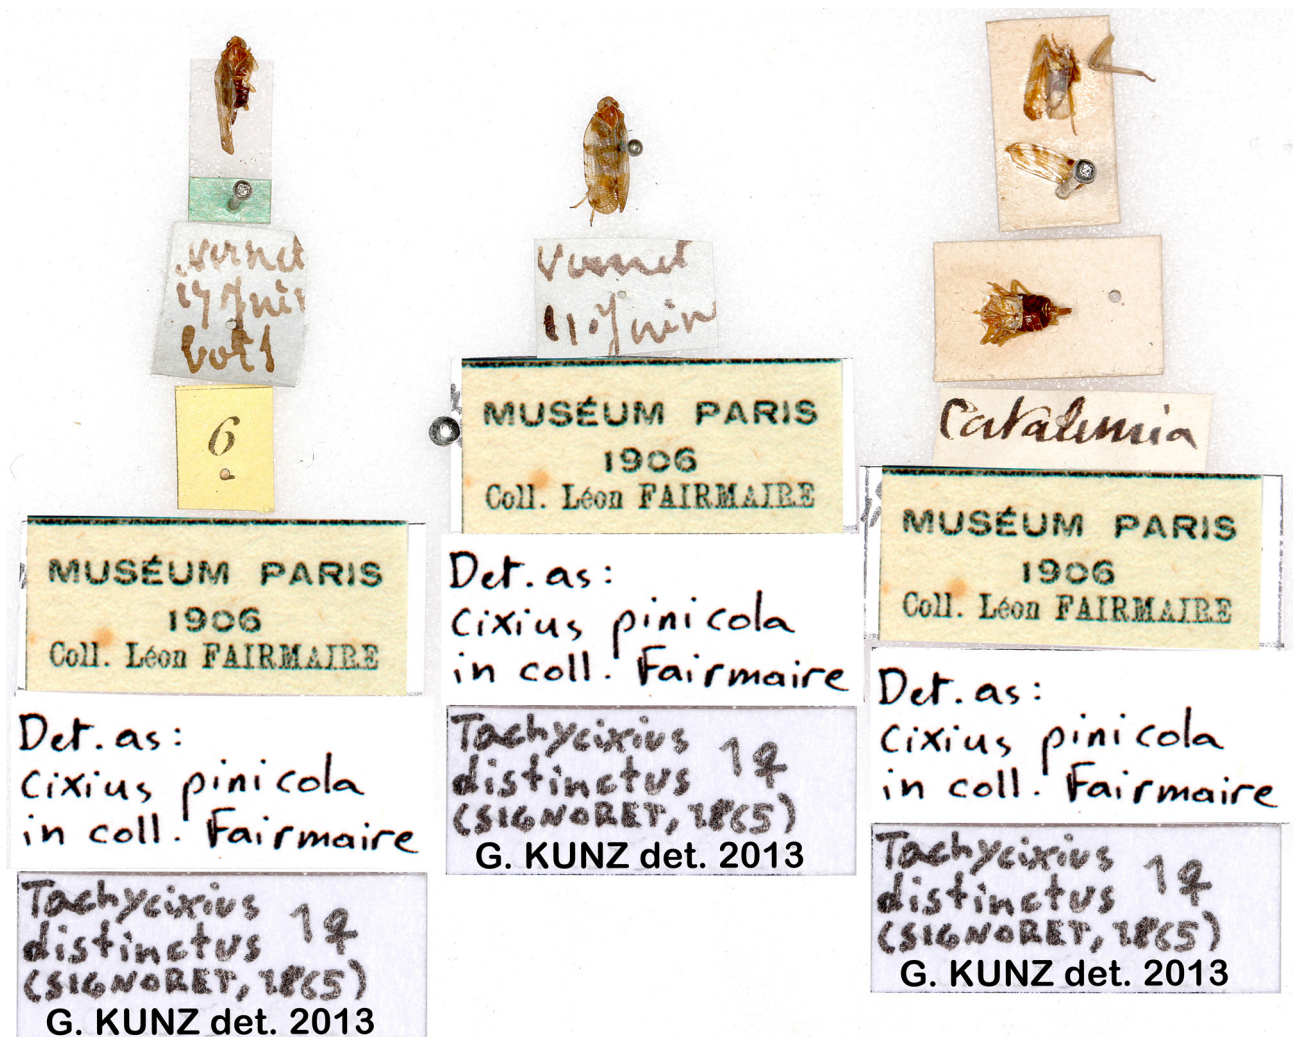 Vernet
17 Juin
6
MUSÉUM PARIS
1906
Coll. Léon FAIRMAIRE
Det. as:
Cixius pinicola
in coll. Fairmaire
Tachycixius 1♀
distinctus
(SIGNORET, 1865)
G. KUNZ det. 2013
Vernet
11 Juin
MUSÉUM PARIS
1906
Coll. Léon FAIRMAIRE
Det. as:
Cixius pinicola
in coll. Fairmaire
Tachycixius 1♀
distinctus
(SIGNORET, 1865)
G. KUNZ det. 2013
Catalunia
MUSÉUM PARIS
1906
Coll. Léon FAIRMAIRE
Det. as:
Cixius pinicola
in coll. Fairmaire
Tachycixius 1♀
distinctus
(SIGNORET, 1865)
G. KUNZ det. 2013